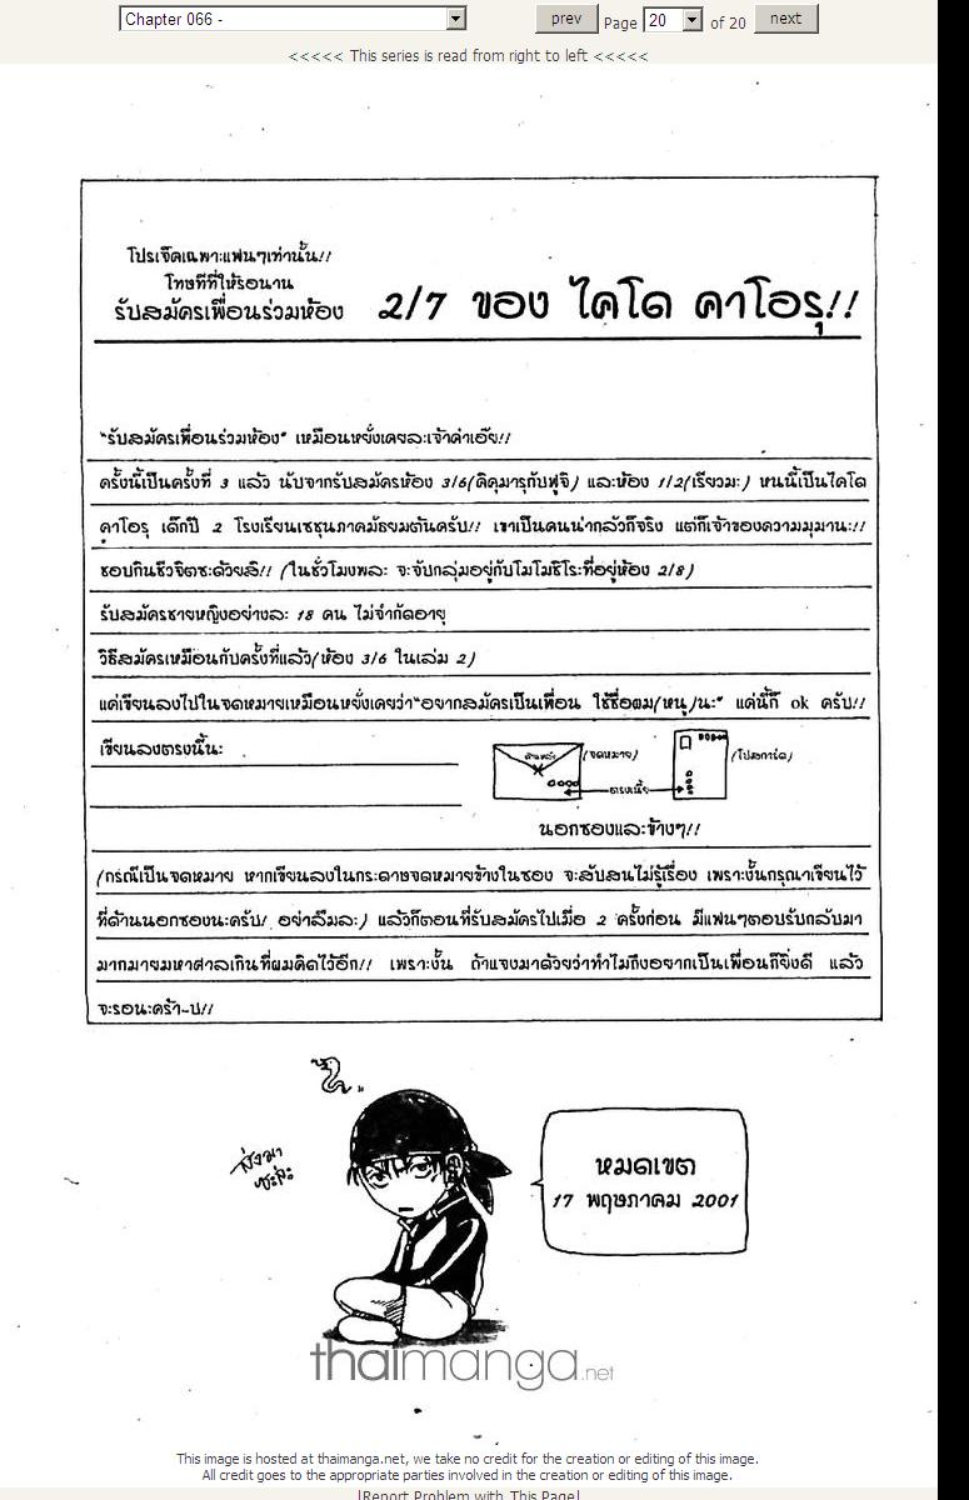 Chapter 066 -
prev Page 20 of 20 next
<<<<< This series is read from right to left <<<<<
โปรเจ็คเฉพาะแฟนๆเท่านั้น!!
โทษทีที่ให้รอนาน
รับสมัครเพื่อนร่วมห้อง 2/7 ของ ไคโด คาโอรุ!!
"รับสมัครเพื่อนร่วมห้อง" เหมือนหยั่งเคยละเจ้าค่าเอ๊ย!!
ครั้งนี้เป็นครั้งที่ 3 แล้ว นับจากรับสมัครห้อง 3/6(คิคุมารุกับฟูจิ) และห้อง 1/2(เรียวมะ) หนนี้เป็นไคโด
คาโอรุ เด็กปี 2 โรงเรียนเซชุนภาคมัธยมต้นครับ!! เขาเป็นคนน่ากลัวก็จริง แต่ก็เจ้าของความมุมานะ!!
ชอบกินชีวจิตซะด้วยสิ!! (ในชั่วโมงพละ จะจับกลุ่มอยู่กับโมโมชิโระที่อยู่ห้อง 2/8)
รับสมัครชายหญิงอย่างละ 18 คน ไม่จำกัดอายุ
วิธีสมัครเหมือนกับครั้งที่แล้ว(ห้อง 3/6 ในเล่ม 2)
แค่เขียนลงไปในจดหมายเหมือนหยั่งเคยว่า"อยากสมัครเป็นเพื่อน ใช้ชื่อผม/หนู/นะ" แค่นี้ก็ ok ครับ!!
เขียนลงตรงนี้นะ
(จดหมาย)
(โปสการ์ด)
ตรงเนี้ย
นอกซองและข้างๆ!!
(กรณีเป็นจดหมาย หากเขียนลงในกระดาษจดหมายข้างในซอง จะสับสนไม่รู้เรื่อง เพราะงั้นกรุณาเขียนไว้
ที่ด้านนอกซองนะครับ! อย่าลืมละ) แล้วก็ตอนที่รับสมัครไปเมื่อ 2 ครั้งก่อน มีแฟนๆตอบรับกลับมา
มากมายมหาศาลเกินที่ผมคิดไว้อีก!! เพราะงั้น ถ้าแจงมาด้วยว่าทำไมถึงอยากเป็นเพื่อนก็ยิ่งดี แล้ว
จะรอนะคร้า-บ!!
ส่งมา
ซะล่ะ
หมดเขต
17 พฤษภาคม 2001
thaimanga.net
This image is hosted at thaimanga.net, we take no credit for the creation or editing of this image.
All credit goes to the appropriate parties involved in the creation or editing of this image.
[Report Problem with This Page]